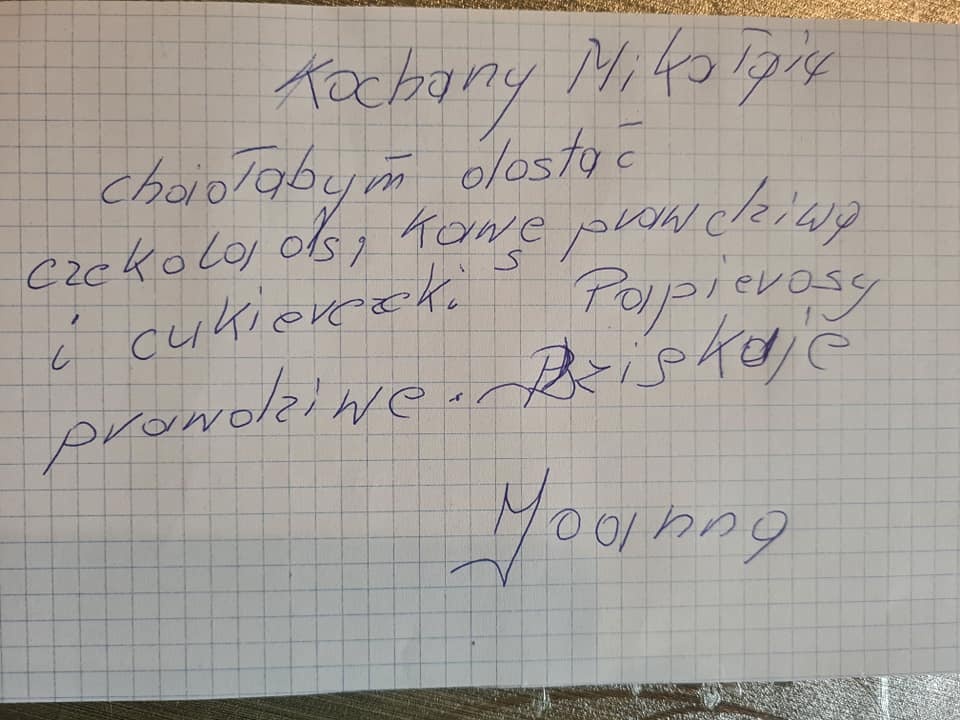 Kochany Mikołaju
chciałabym dostać
czekoladę, kawę prawdziwą
i cukiereczki Papierosy
prawdziwe. Dziękuję
Joanna